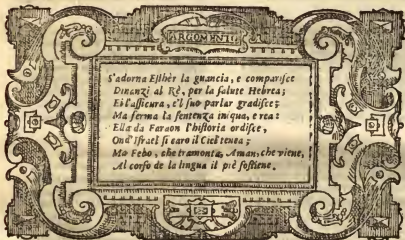 ARGOMENTO
S'adorna Esthèr la guancia, e comparisce
Dinanzi al Rè, per la salute Hebrea;
Ei l'assicura, e'l suo parlar gradisce;
Ma ferma la sentenza iniqua, e rea:
Ella da Faraon l'historia ordisce,
Ond'Israel si caro il Ciel tenea;
Ma Febo, che tramonta, Aman, che viene,
Al corso de la lingua il piè sostiene.